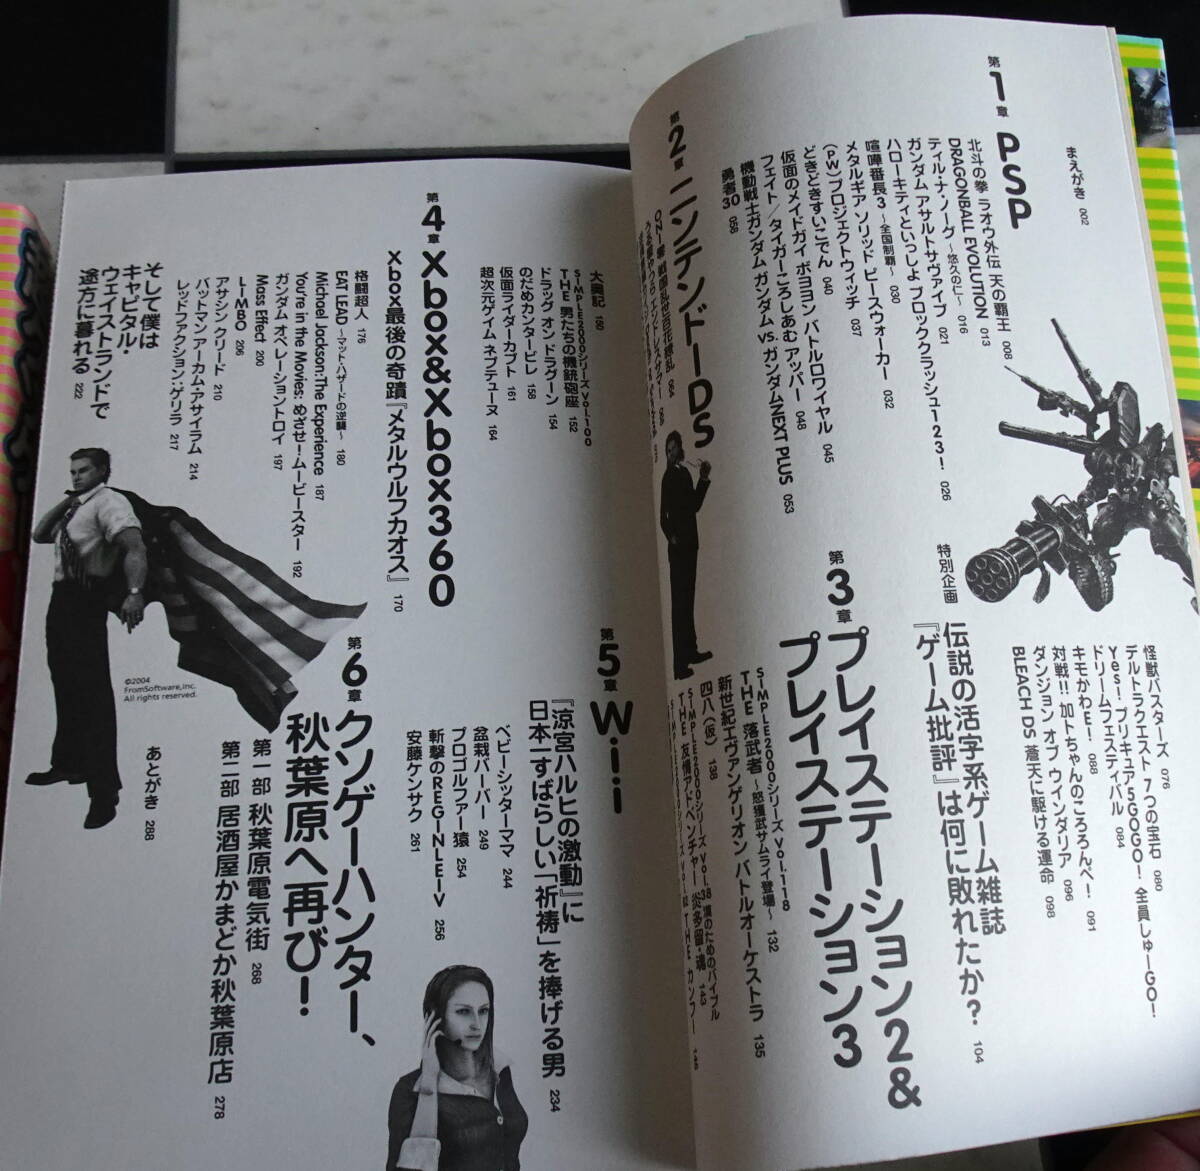 まえがき 002
第1章 PSP
北斗の拳 ラオウ外伝 天の覇王 008
DRAGONBALL EVOLUTION 013
ティル・ナ・ノーグ ～悠久の仁～ 016
ガンダム アサルトサヴァイブ 021
ハローキティといっしょ ブロッククラッシュ123! 026
喧嘩番長3 ～全国制覇～ 030
メタルギア ソリッド ピースウォーカー 032
(PW)プロジェクトウィッチ 037
どきどきすいこでん 040
仮面のメイドガイ ボヨヨンバトルロワイヤル 045
フェイト/タイガーころしあむ アッパー 048
機動戦士ガンダム ガンダムVS.ガンダムNEXT PLUS 053
勇者30 058
第2章 ニンテンドーDS
ONI零 戦国乱世百花繚乱 064
うる星やつら エンドレスサマー
怪獣バスターズ 076
デルトラクエスト 7つの宝石 080
Yes! プリキュア5GOGO! 全員しゅーGO!
ドリームフェスティバル 084
キモかわE! 088
対戦!! 加トちゃんのころろんぺ! 091
ダンジョン オブ ウインダリア 096
BLEACH DS 蒼天に駆ける運命 098
特別企画
伝説の活字系ゲーム雑誌
『ゲーム批評』は何に敗れたか? 104
第3章 プレイステーション2&
プレイステーション3
SIMPLE2000シリーズ Vol.118
THE 落武者 ～怒獲武サムライ登場～ 132
新世紀エヴァンゲリオン バトルオーケストラ 135
四八(仮) 138
SIMPLE2000シリーズ Vol.38 漢のためのバイブル
THE 友情アドベンチャー 炎多留・魂 143
大奥記 150
SIMPLE2000シリーズ Vol.100
THE 男たちの機銃砲座 152
ドラッグ オン ドラグーン 154
のだめカンタービレ 158
仮面ライダーカブト 161
超次元ゲイム ネプテューヌ 164
第4章 Xbox&Xbox360
Xbox最後の奇蹟『メタルウルフカオス』 170
格闘超人 176
EAT LEAD ～マット・ハザードの逆襲～ 180
Michael Jackson: The Experience 187
You're in the Movies: めざせ!ムービースター 192
ガンダム オペレーショントロイ 197
Mass Effect 200
LIMBO 206
アサシン クリード 210
バットマン アーカム・アサイラム 214
レッドファクション:ゲリラ 217
そして僕は
キャピタル・
ウェイストランドで
途方に暮れる 222
©2004
FromSoftware, Inc.
All rights reserved.
第5章 Wii
『涼宮ハルヒの激動』に
日本一すばらしい「祈祷」を捧げる男 234
ベビーシッターママ 244
盆栽バーバー 249
プロゴルファー猿 254
斬撃のREGINLEIV 256
安藤ケンサク 261
第6章 クソゲーハンター、
秋葉原へ再び!
第一部 秋葉原電気街 268
第二部 居酒屋かまどか秋葉原店 278
あとがき 288